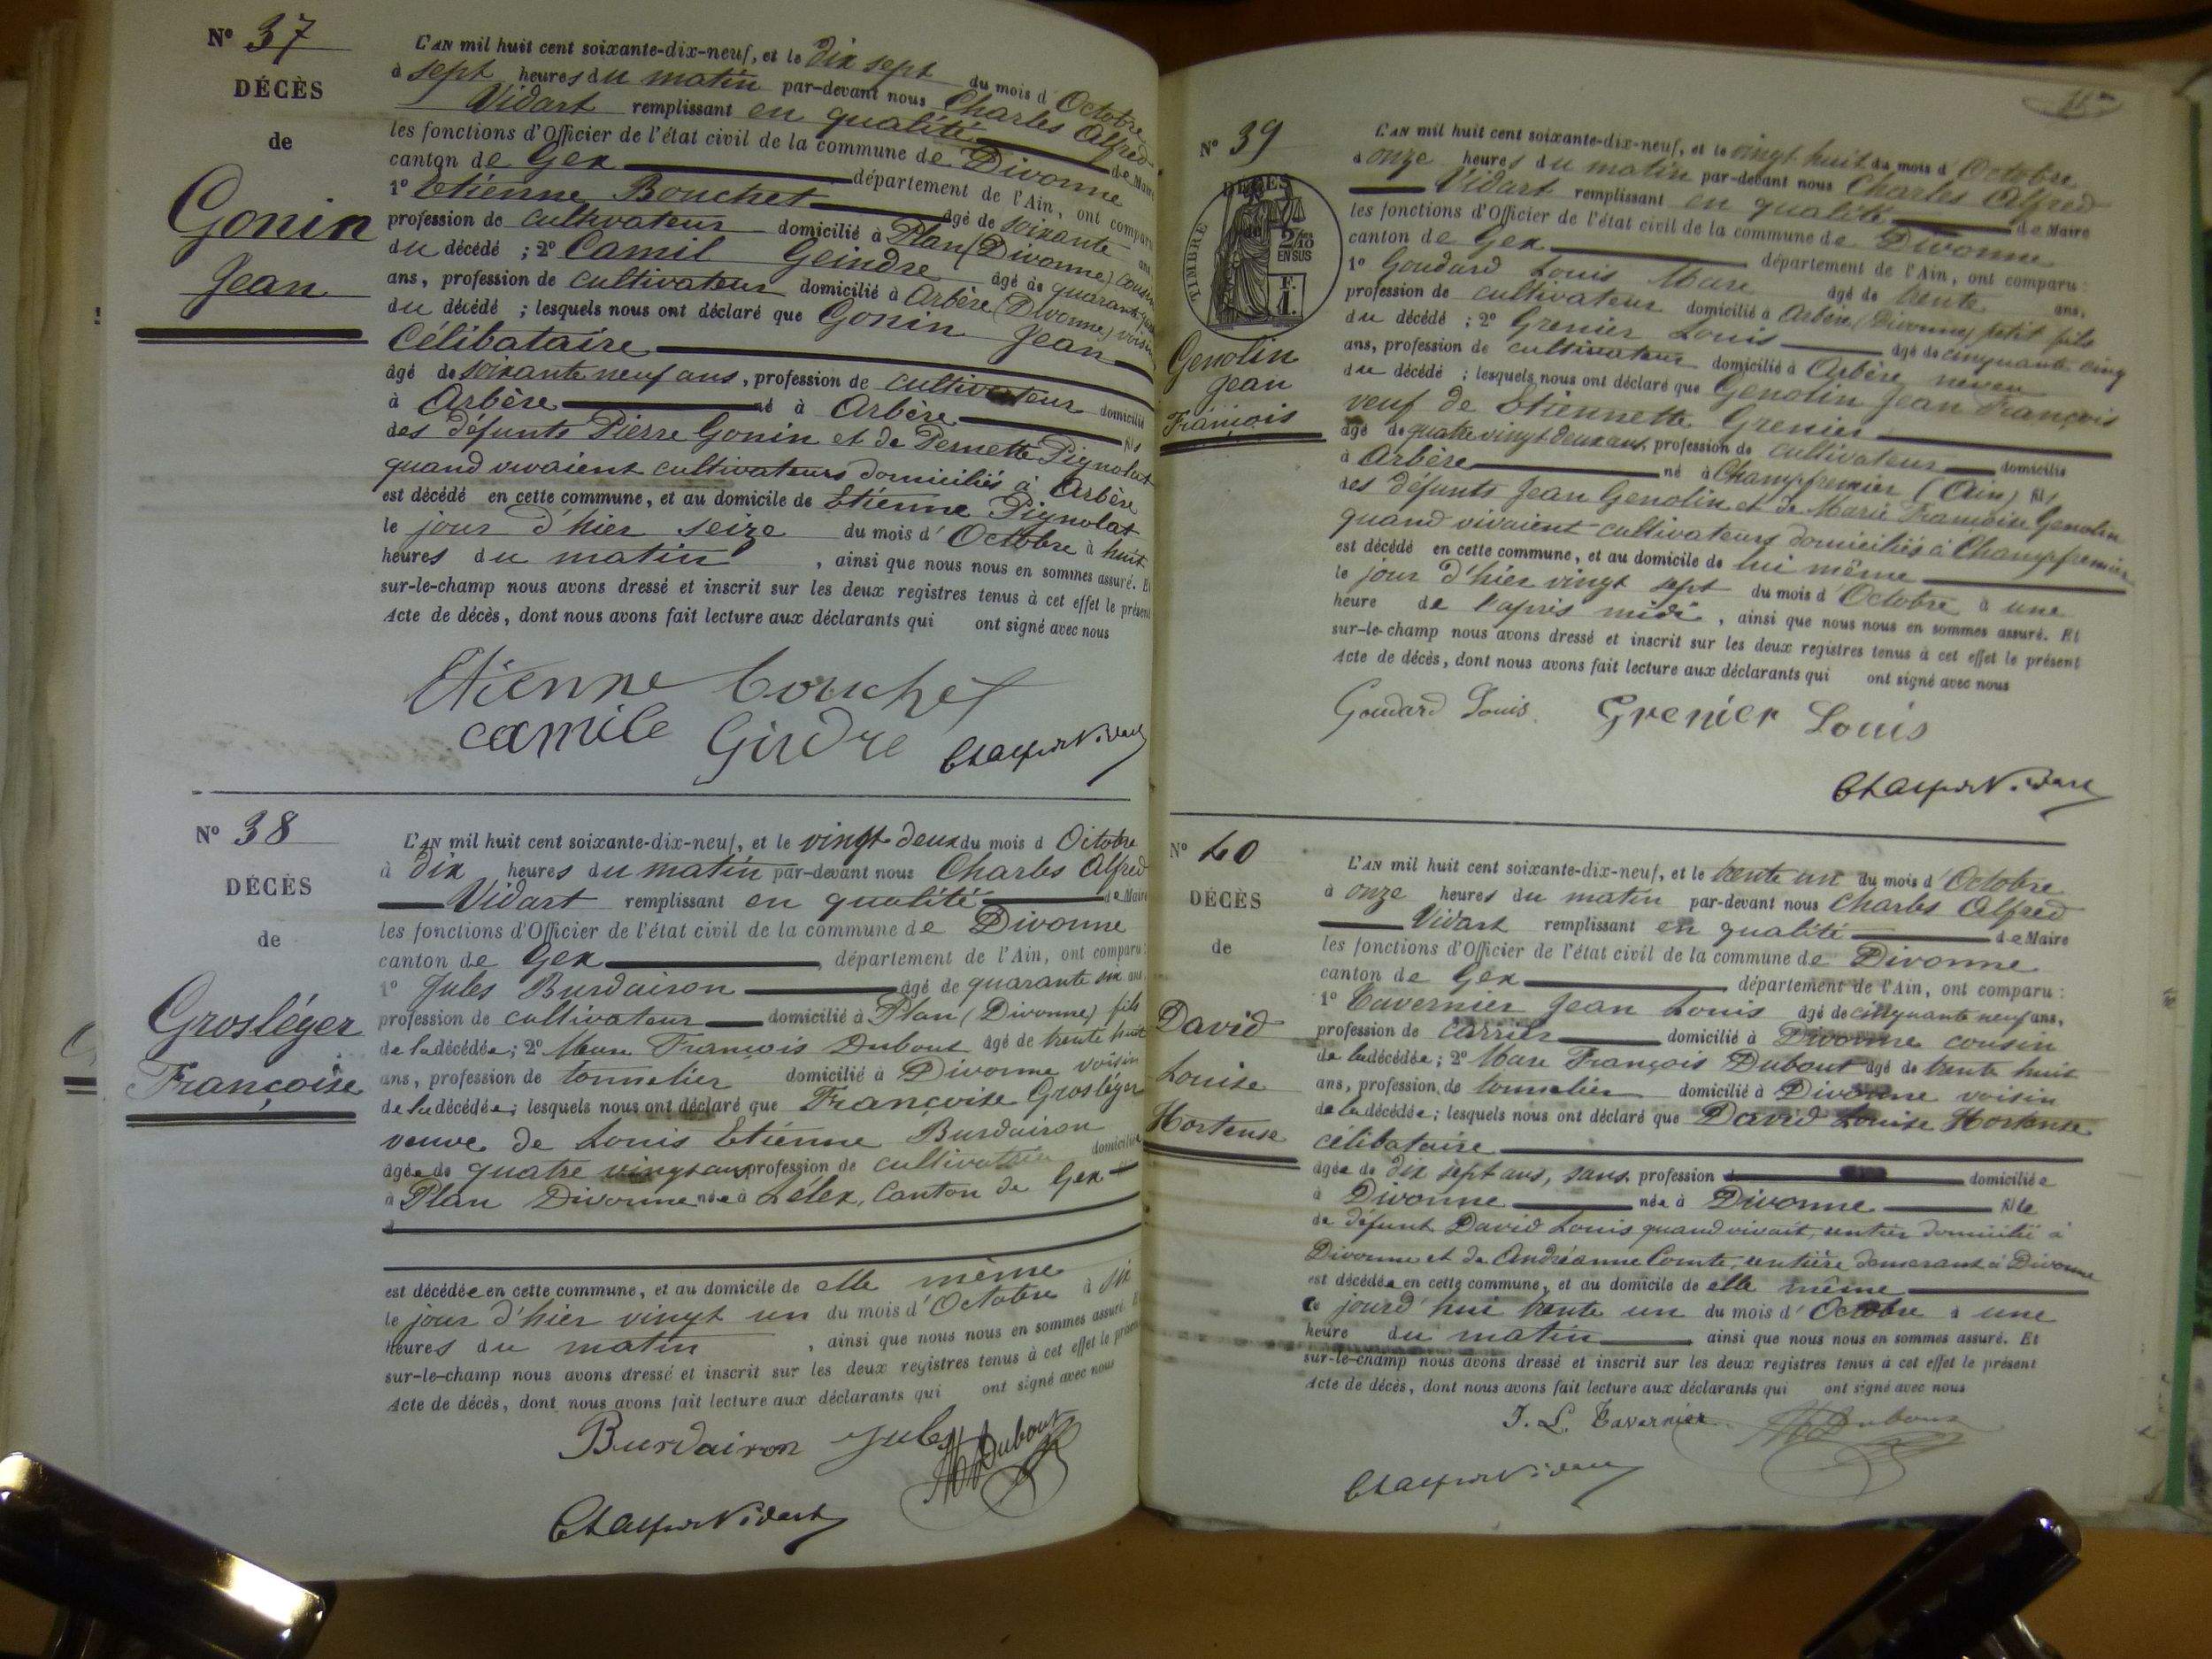 N° 37
DÉCÈS
de
Gonin
Jean
L'AN mil huit cent soixante-dix-neuf, et le dix sept du mois d'Octobre
à sept heures du matin par-devant nous Charles Alfred
Vidart remplissant en qualité de Maire
les fonctions d'Officier de l'état civil de la commune de Divonne
canton de Gex département de l'Ain, ont comparu
1° Etienne Bouchet âgé de soixante ans
profession de cultivateur domicilié à Plan (Divonne) cousin
du décédé ; 2° Camil Geindre âgé de quarante
ans, profession de cultivateur domicilié à Arbère (Divonne) voisin
du décédé ; lesquels nous ont déclaré que Gonin Jean
Célibataire
âgé de soixante neuf ans, profession de cultivateur domicilié
à Arbère né à Arbère fils
des défunts Pierre Gonin et de Pernette Pignolat
quand vivaient cultivateurs domiciliés à Arbère
est décédé en cette commune, et au domicile de Etienne Pignolat
le jour d'hier seize du mois d'Octobre à huit
heures du matin, ainsi que nous nous en sommes assuré. Et
sur-le-champ nous avons dressé et inscrit sur les deux registres tenus à cet effet le présent
Acte de décès, dont nous avons fait lecture aux déclarants qui ont signé avec nous
Etienne bouchet
camile Girdre Ch Alfred Vidart
N° 38
DÉCÈS
de
Grosléger
Françoise
L'AN mil huit cent soixante-dix-neuf, et le vingt deux du mois d Octobre
à dix heures du matin par-devant nous Charles Alfred
Vidart remplissant en qualité de Maire
les fonctions d'Officier de l'état civil de la commune de Divonne
canton de Gex, département de l'Ain, ont comparu :
1° Jules Burdairon âgé de quarante six ans
profession de cultivateur domicilié à Plan (Divonne) fils
de la décédée ; 2° Marc François Dubout âgé de trente huit
ans, profession de tonnelier domicilié à Divonne voisin
de la décédée ; lesquels nous ont déclaré que Françoise Grosléger
veuve de Louis Etienne Burdairon
âgée de quatre vingts ans profession de cultivatrice domiciliée
à Plan Divonne née à Lélex, Canton de Gex
est décédée en cette commune, et au domicile de elle même
le jour d'hier vingt un du mois d'Octobre à six
heures du matin, ainsi que nous nous en sommes assuré. Et
sur-le-champ nous avons dressé et inscrit sur les deux registres tenus à cet effet le présent
Acte de décès, dont nous avons fait lecture aux déclarants qui ont signé avec nous
Burdairon Jules Dubout
Ch Alfred Vidart
N° 39
DÉCÈS
TIMBRE
2/10
EN SUS
F.
1.
Genolin
Jean
François
L'AN mil huit cent soixante-dix-neuf, et le vingt huit du mois d'Octobre
à onze heures du matin par-devant nous Charles Alfred
Vidart remplissant en qualité de Maire
les fonctions d'Officier de l'état civil de la commune de Divonne
canton de Gex département de l'Ain, ont comparu :
1° Goudard Louis Marc âgé de trente ans,
profession de cultivateur domicilié à Arbère (Divonne) petit fils
du décédé ; 2° Grenier Louis âgé de cinquante cinq
ans, profession de cultivateur domicilié à Arbère neveu
du décédé ; lesquels nous ont déclaré que Genolin Jean François
veuf de Etiennette Grenier
âgé de quatre vingt deux ans, profession de cultivateur domicilié
à Arbère né à Champfremier (Ain) fils
des défunts Jean Genolin et de Marie Françoise Genolin
quand vivaient cultivateurs domiciliés à Champfremier
est décédé en cette commune, et au domicile de lui même
le jour d'hier vingt sept du mois d'Octobre à une
heure de l'après midi, ainsi que nous nous en sommes assuré. Et
sur-le-champ nous avons dressé et inscrit sur les deux registres tenus à cet effet le présent
Acte de décès, dont nous avons fait lecture aux déclarants qui ont signé avec nous
Goudard Louis. Grenier Louis
Ch Alfred Vidart
N° 40
DÉCÈS
de
David
Louise
Hortense
L'AN mil huit cent soixante-dix-neuf, et le trente un du mois d'Octobre
à onze heures du matin par-devant nous Charles Alfred
Vidart remplissant en qualité de Maire
les fonctions d'Officier de l'état civil de la commune de Divonne
canton de Gex département de l'Ain, ont comparu :
1° Tavernier Jean Louis âgé de cinquante neuf ans,
profession de carrier domicilié à Divonne cousin
de la décédée ; 2° Marc François Dubout âgé de trente huit
ans, profession de tonnelier domicilié à Divonne voisin
de la décédée ; lesquels nous ont déclaré que David Louise Hortense
célibataire
âgée de dix sept ans, sans profession domiciliée
à Divonne née à Divonne fille
de défunt David Louis quand vivait, rentier domicilié à
Divonne et de Andréanne Comte, rentière demeurant à Divonne
est décédée en cette commune, et au domicile de elle même
ce jourd'hui trente un du mois d'Octobre à une
heure du matin ainsi que nous nous en sommes assuré. Et
sur-le-champ nous avons dressé et inscrit sur les deux registres tenus à cet effet le présent
Acte de décès, dont nous avons fait lecture aux déclarants qui ont signé avec nous
J. L. Tavernier Dubout
Ch Alfred Vidart